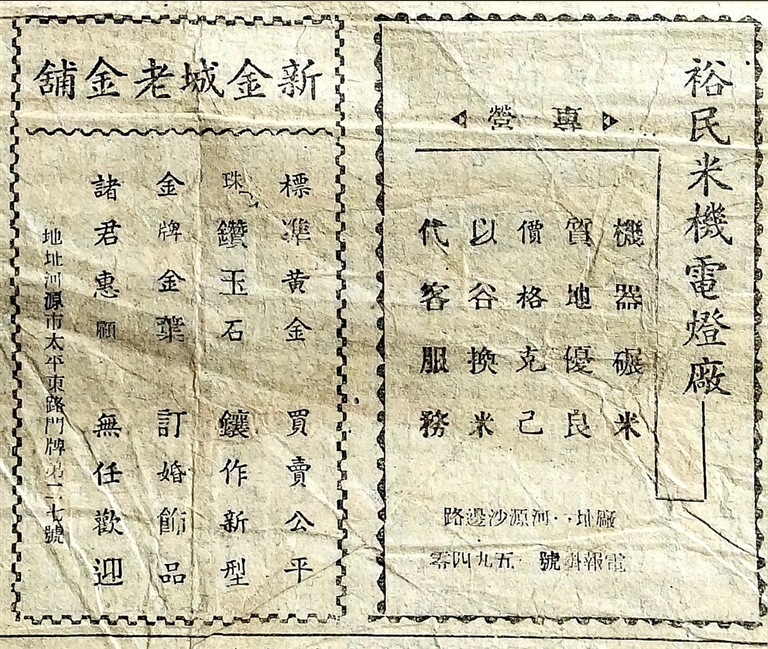 裕民米機電燈廠
專營
機器碾米
質地優良
價格克己
以谷換米
代客服務
廠址：河源沙邊路
電報掛號 五九四零
新金城老金舖
標準黃金 買賣公平
珠鑽玉石 鑲作新型
金牌金葉 訂婚飾品
諸君惠顧 無任歡迎
地址河源市太平東路門牌第二七號